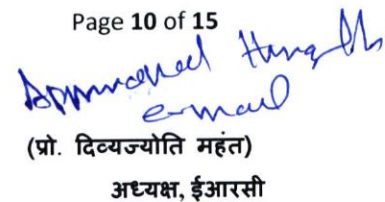 Page 10 of 15
Approved through
e-mail
(प्रो. दिव्यज्योति महंत)
अध्यक्ष, ईआरसी